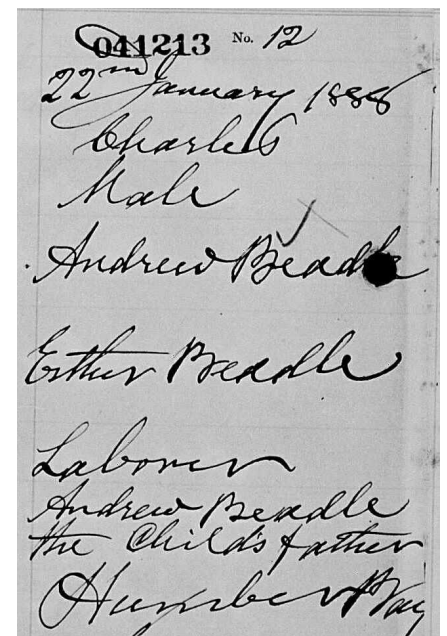 041213 No. 12
22nd January 1888
Charles
Male
Andrew Beadle
Esther Beadle
Laborer
Andrew Beadle
the Child's father
Humber Bay